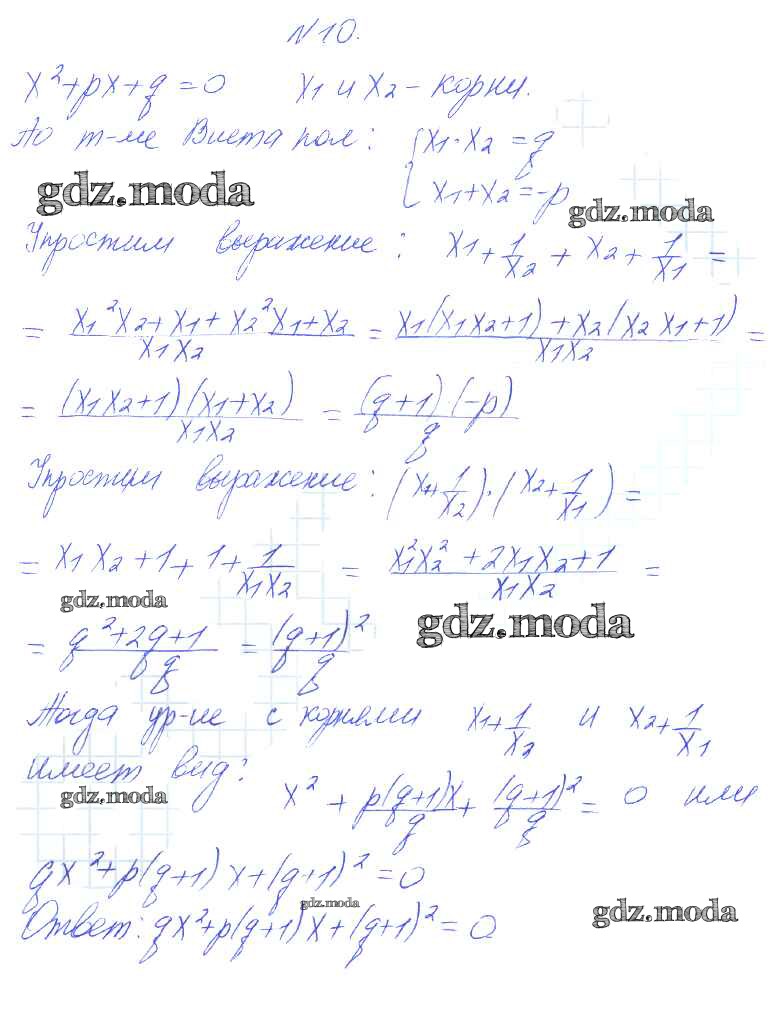 №10.
x²+px+q=0 x₁ и x₂ – корни.
По т-ме Виета пол: { x₁·x₂ = q
x₁+x₂ = -p
gdz.moda
gdz.moda
Упростим выражение: x₁ + 1/x₂ + x₂ + 1/x₁ =
= (x₁²x₂+x₁+x₂²x₁+x₂)/(x₁x₂) = (x₁(x₁x₂+1)+x₂(x₂x₁+1))/(x₁x₂) =
= ((x₁x₂+1)(x₁+x₂))/(x₁x₂) = ((q+1)·(-p))/q
Упростим выражение: (x₁+1/x₂)·(x₂+1/x₁) =
= x₁x₂+1+1+1/(x₁x₂) = (x₁²x₂²+2x₁x₂+1)/(x₁x₂) =
gdz.moda
gdz.moda
= (q²+2q+1)/q = (q+1)²/q
Тогда ур-ие с корнями x₁+1/x₂ и x₂+1/x₁
имеет вид:
gdz.moda
x² + p(q+1)x/q + (q+1)²/q = 0 или
qx²+p(q+1)x+(q+1)²=0
gdz.moda
gdz.moda
Ответ: qx²+p(q+1)x+(q+1)²=0